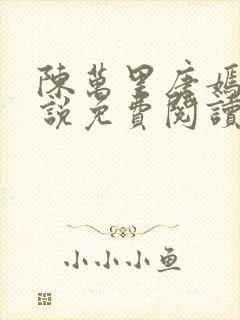 陳萬里唐嫣
說免費閱讀
小小小魚